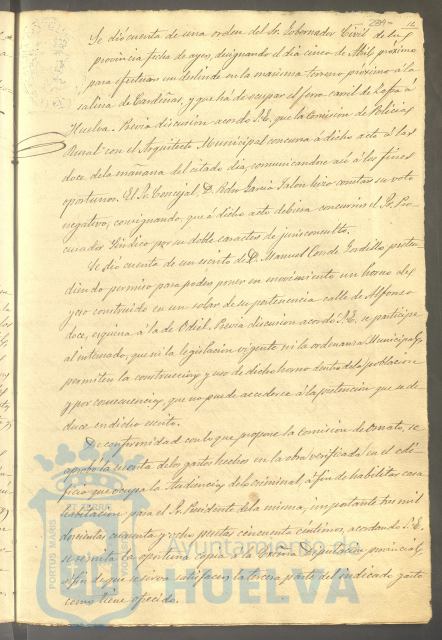 Se dió cuenta de una orden del Sr. Gobernador Civil de la
provincia fecha de ayer, designando el dia cinco de Abril próximo
para efectuar un deslinde en la marisma terreno próximo á la
salina de Cardeñas, y que há de ocupar el ferro-carril de Zafra á
Huelva. Previa discusion acordó S.E. que la Comision de Policia
Rural con el Arquitecto Municipal concurra á dicho acto á las
doce de la mañana del citado dia, comunicandose asi á los fines
oportunos. El Sr. Concejal, D. Pedro Garcia Jalon hizo constar su voto
negativo, consignando, que á dicho acto debiera concurrir el Sr. Pro-
curador Síndico, por su doble caracter de jurisconsulto.
Se dió cuenta de un escrito de D. Manuel Conde Gordillo, preten-
diendo permiso para poder poner en movimiento un horno de
yeso construido en un solar de su pertenencia calle de Alfonso
doce, esquina á la de Odiel. Previa discusion acordó S.E. se participe
al interesado, que ni la legislacion vigente ni la ordenanza Municipal
permiten la construccion y uso de dicho horno dentro de la poblacion
y por consecuencia, que no puede accederse á la pretencion que se de-
duce en dicho escrito.
De conformidad con lo que propone la Comision de Ornato, se
aprobó la cuenta de los gastos hechos en la obra verificada en el edi-
ficio que ocupa la Audiencia de lo criminal, á fin de habilitar casa
habitacion para el Sr. Presidente de la misma, importante tres mil
doscientas cuarenta y ocho pesetas cincuenta centimos, acordando S.E.
se remita la oportuna copia á la Excma. Diputacion provincial,
á fin de que se sirva satisfacer la tercera parte del indicado gasto
como tiene ofrecido.
PORTUS MARIS
ET TERRE
Ayuntamiento de
HUELVA